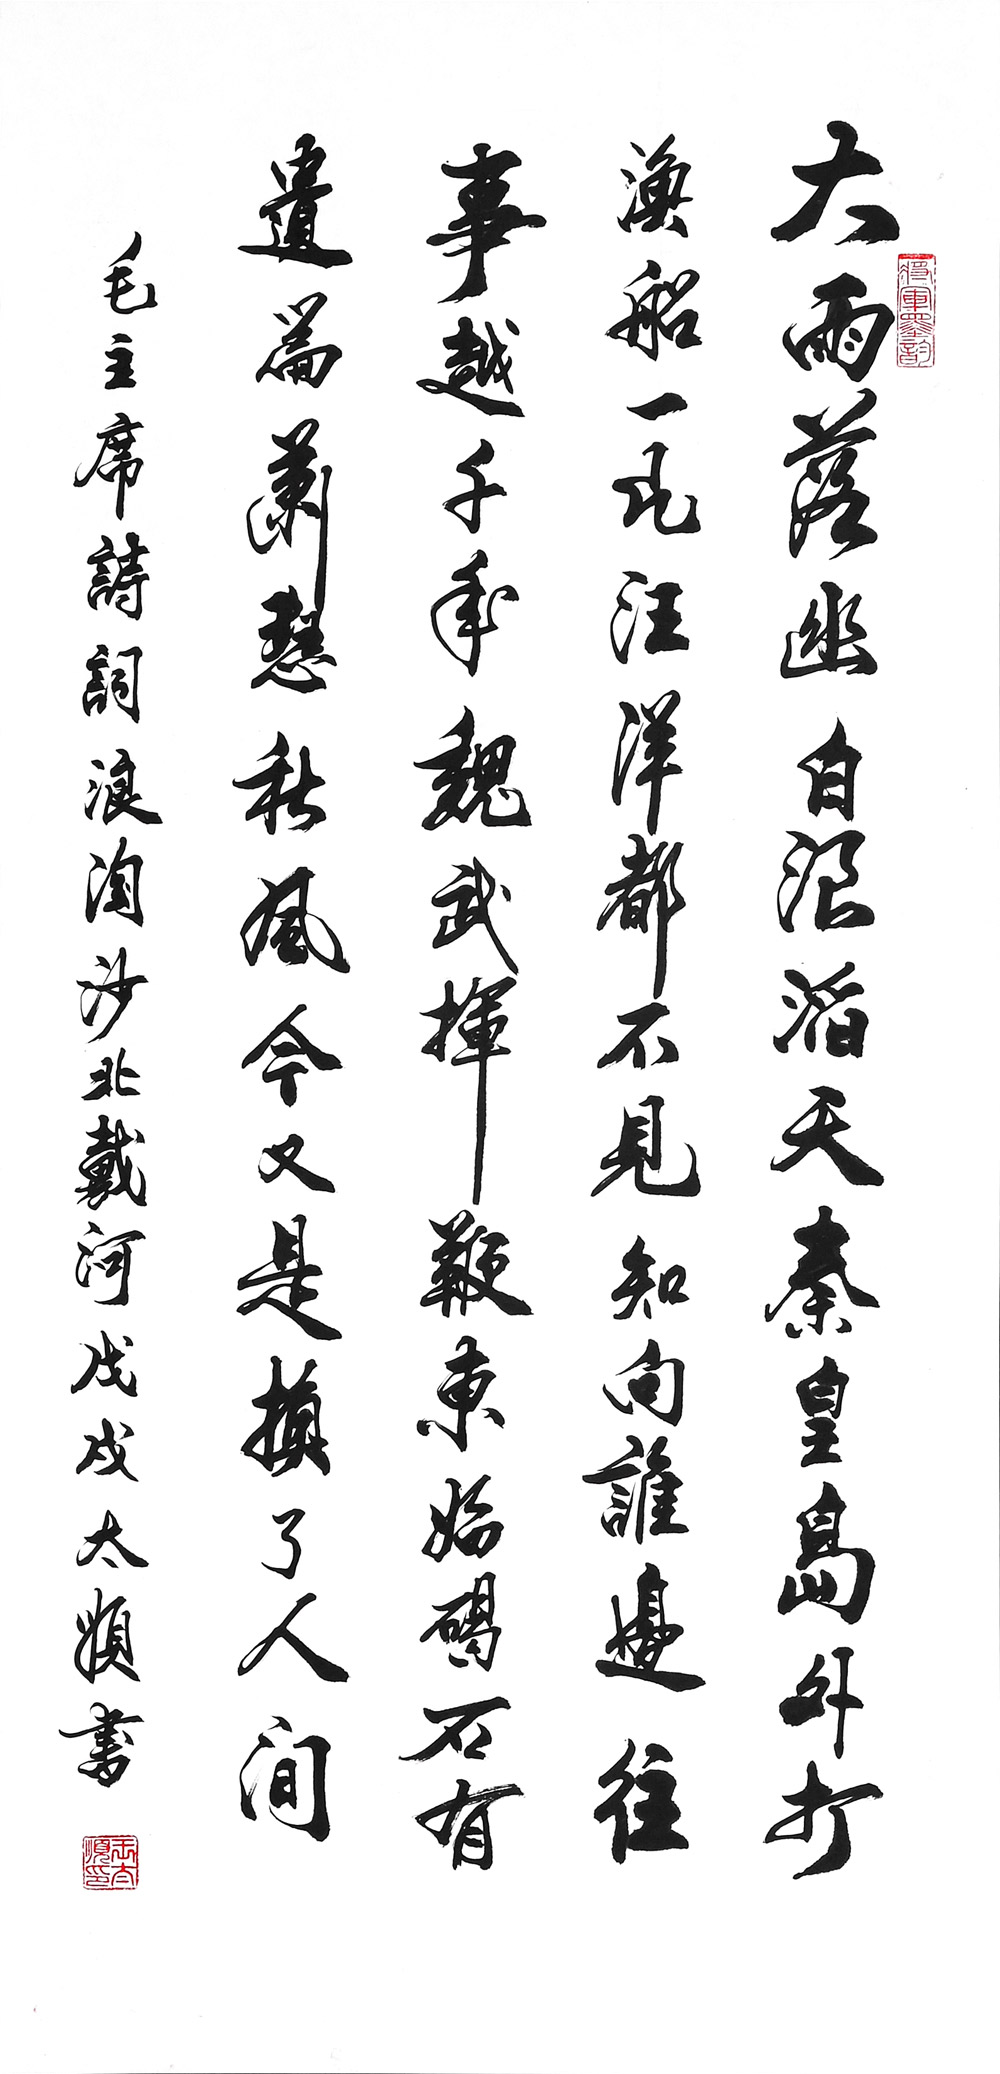 將軍墨韵
大雨落幽白浪滔天秦皇島外打
漁船一片汪洋都不見知向誰邊往
事越千年魏武揮鞭東臨碣石有
遺篇蕭瑟秋風今又是換了人間
毛主席詩詞浪淘沙北戴河戊戌太順書
王太順印